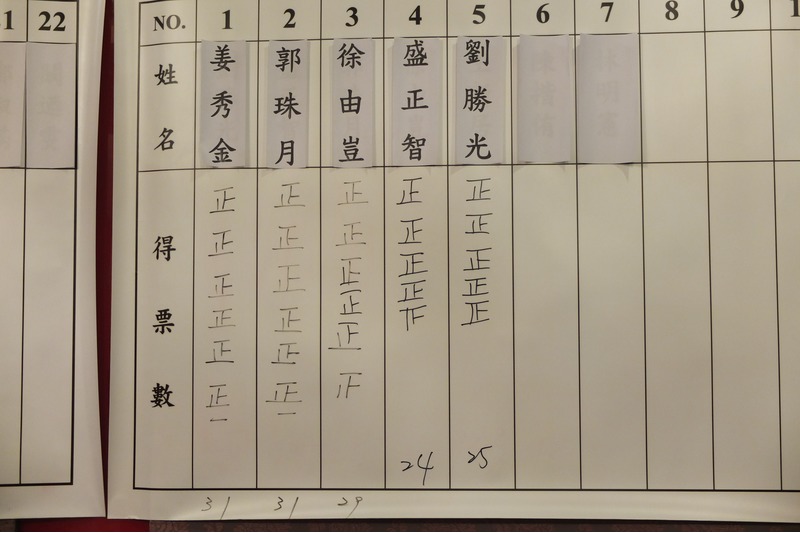 22
NO. 1 2 3 4 5 6 7 8 9
姓名 姜秀金 郭珠月 徐由豈 盛正智 劉勝光
得票數
正 正 正 正 正
正 正 正 正 正
正 正 正 正 正
正 正 正 正 正
正 正 正 正
正 正
一 一
24 25
31 31 29